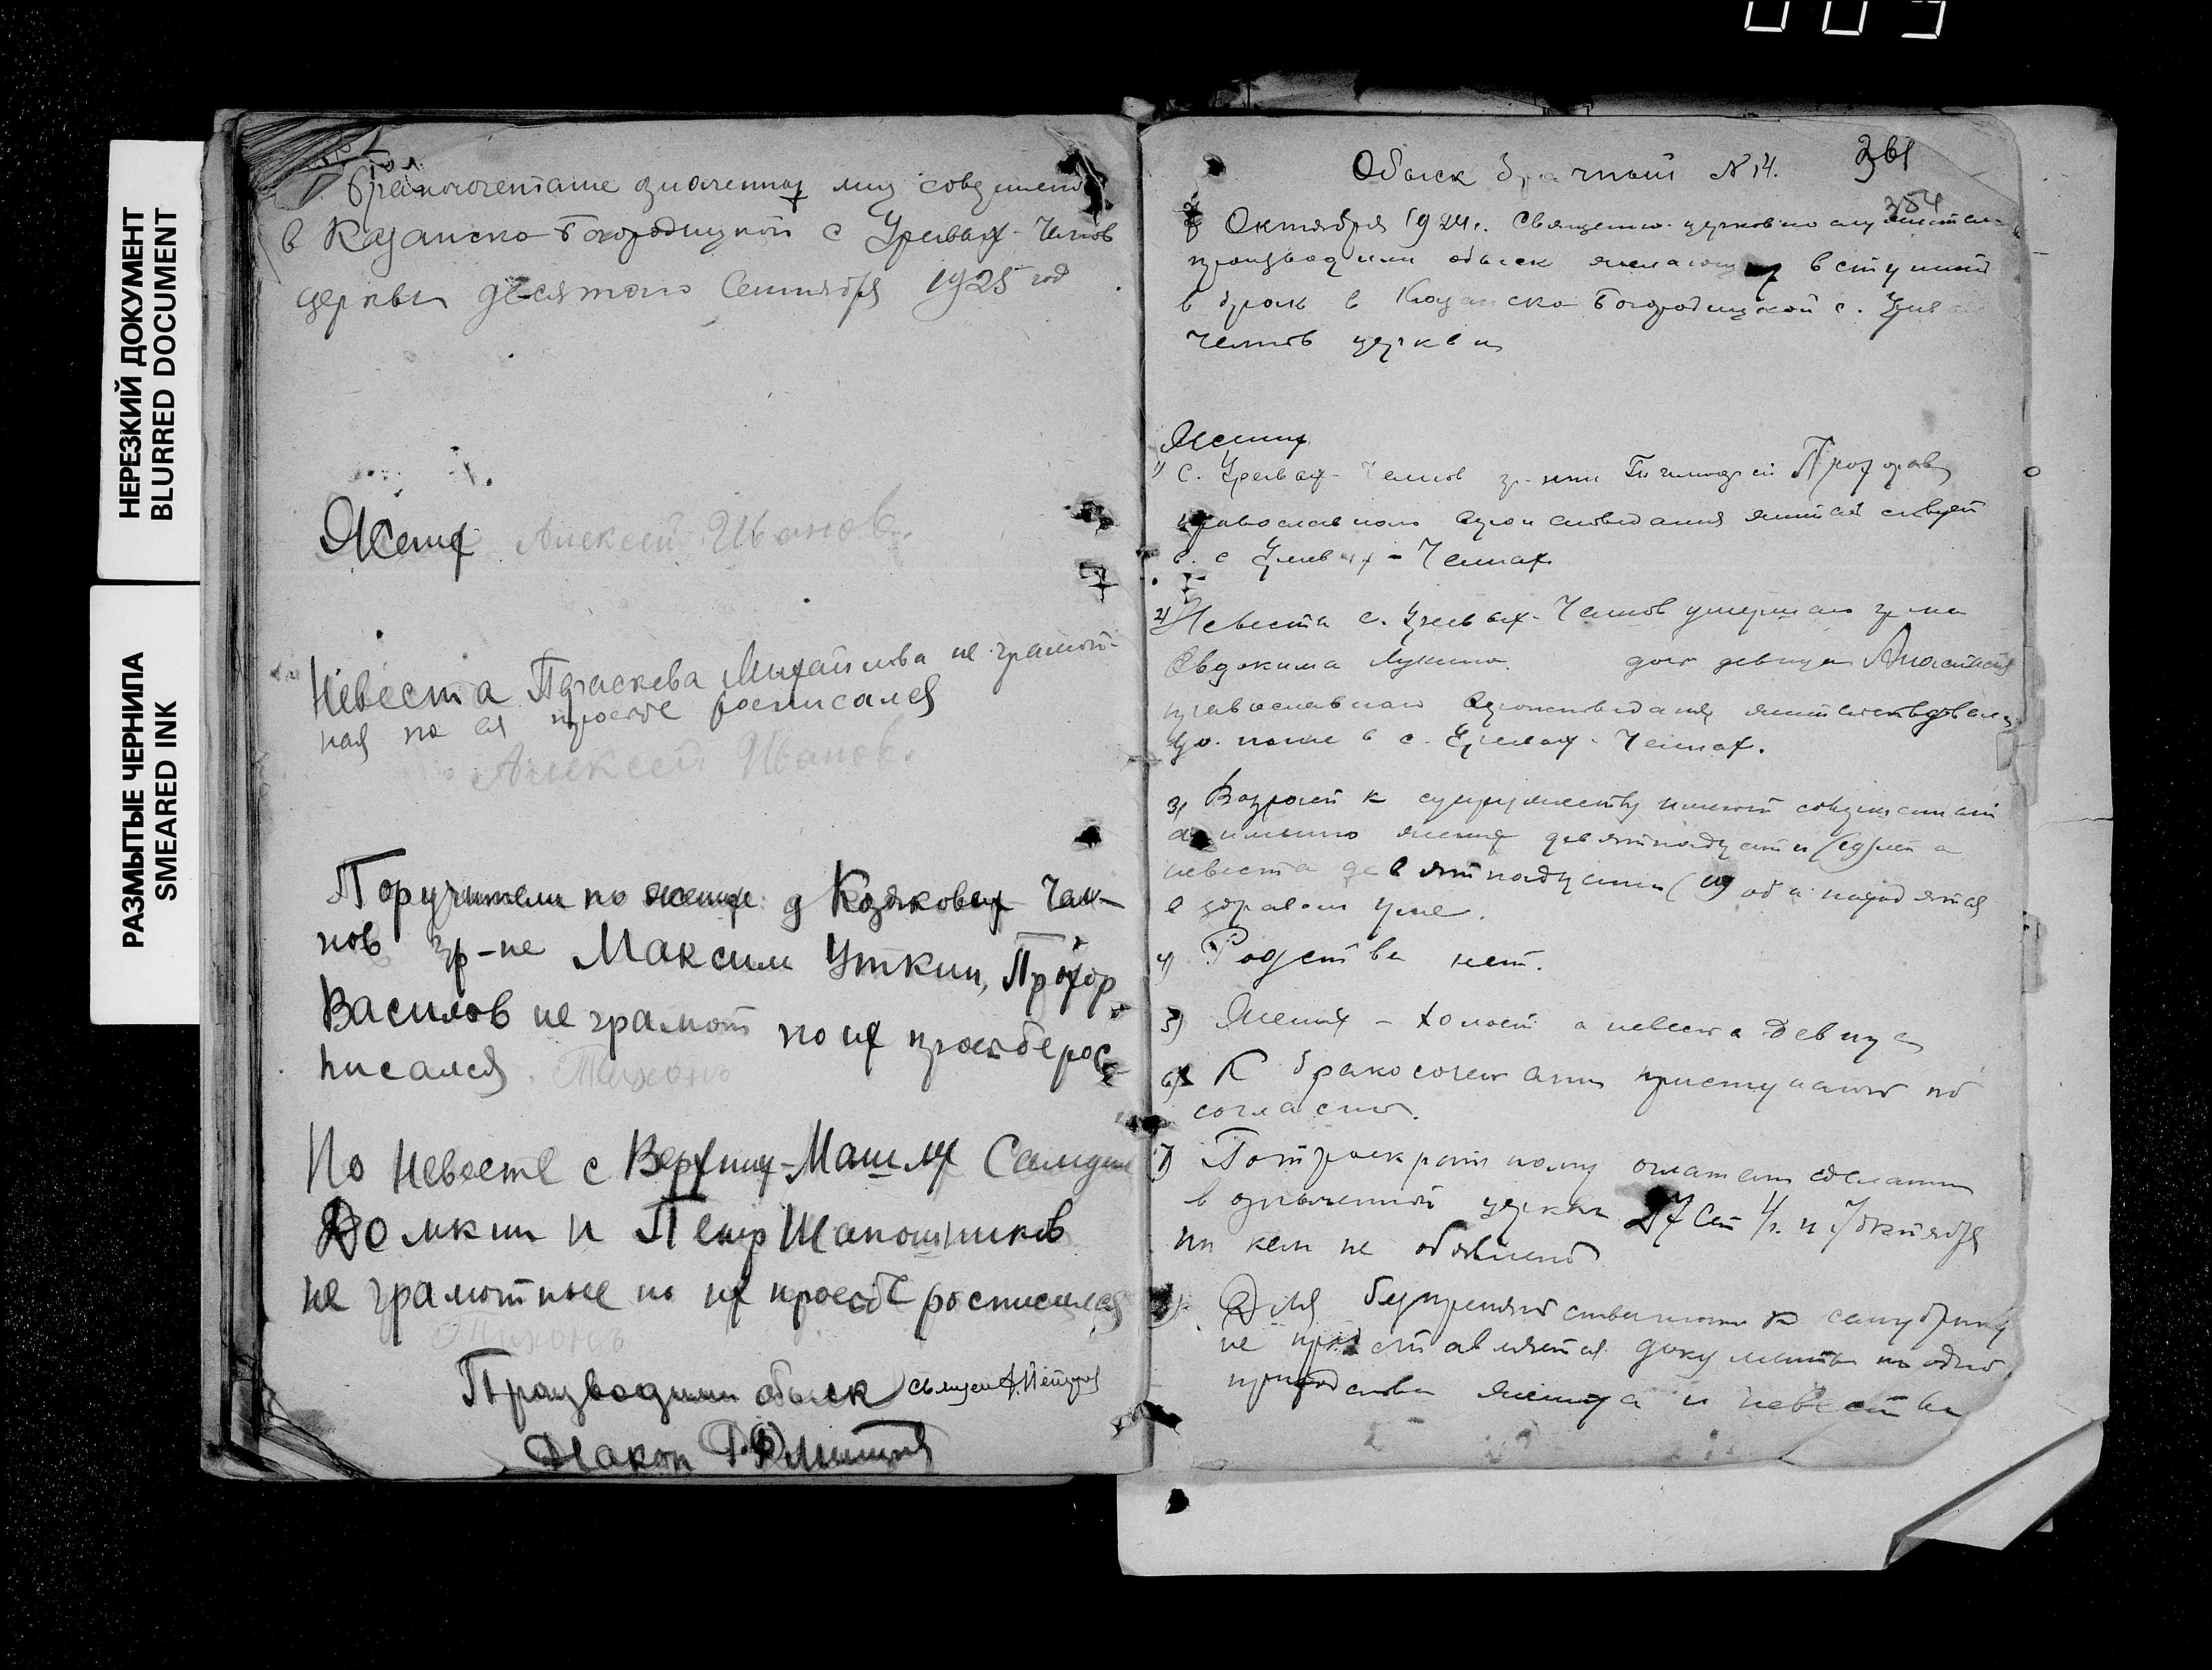 009
НЕРЕЗКИЙ ДОКУМЕНТ
BLURRED DOCUMENT
РАЗМЫТЫЕ ЧЕРНИЛА
SMEARED INK
Бракосочетание означенных лиц совершено
в Казанско-Богородицкой с Уреевых-Челнов
церкви десятого Сентября 1925 год
Жених Алексей Иванов.
Невеста Параскева Михайлова не грамот-
ная по ея прозбе росписался
Алексей Иванов.
Поручители по женихе д Козяковых Чал-
нов гр-не Максим Уткин, Прохор
Василов не грамот по их прозбе рос-
писался Тихонъ
По Невесте с
Домкин и Петр Шапошников
не грамотные по их прозбе росписался
Тихонъ
Производили обыск
Диакон
Обыск брачный №14.
361
354
Октября 1924г. Священно-церковно служители
производили обыск желающих вступить
в брак в Казанско-Богородицкой с.
Челнов церкви
Жених
1) С. Уреевых-Челнов гр-нин Прохоров
православного вероисповедания
в. с - Челнах
2) Невеста с. Уреевых-Челнов умершаго гр-на
Евдокима Лукина дочь девица Анастасия
православнаго вероисповедания
до ныне в с. Уреевых-Челнах.
3) Возраст к супружеству имеют совершенный
а именно жених девятнадцати (19) лет а
невеста девятнадцати (19) оба находятся
в здравом уме.
4) Родства нет.
5) Жених - холост а невеста девица
6) К бракосочетанию приступают по
согласию.
7) По троекратному оглашению сделанному
в означенной церкви 27 Сен 4/ и 7/октября
ни кем не объявлено
8) Для безпрепятственности к сему браку
не представляется документы
жениха и невесты